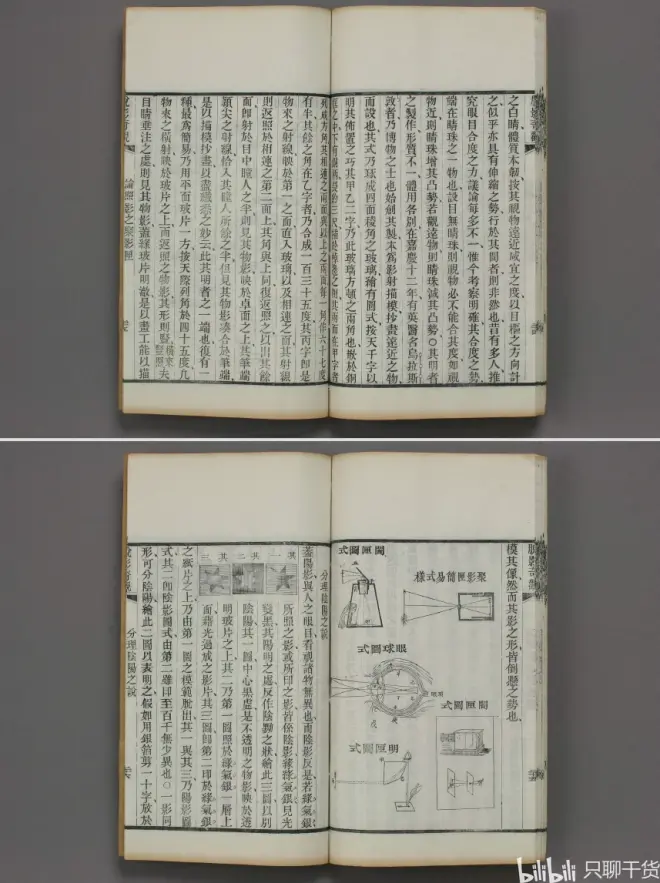 之白睛體質本韌按其視物遠近咸宜之度以目樞之方向計
之似乎亦具有伸縮之勢行於其間者則非然也昔有多人推
究眼目合度之力議論每多不一惟今考察明確其合度之勢
當在睛珠之一物也設目無睛珠則視物必不能合其度如視
物近則睛珠增其凸勢若觀遠物則睛珠減其凸勢〇其明者
之製作形質不一體用各別在嘉慶十二年有英醫名烏拉斯
敦者乃博物之士也始創其製未為影射描模抄畫遠近之物
而設也其式乃球成四面稜角之玻璃繪有圖式按天干字以
明其佈置之巧其甲乙二字乃此玻璃方頓之兩角也嵌於銅
列成方角其相連之兩面與以上之兩面每一角作六十七度
有半其餘之角在乙字者乃合成一百三十五度其丙字卽是
物來之射線映於第一之面直入玻璃以及相連之面其射線
則返照於相連之第二面上其角與上同復返照之以出其餘
面卽射於目中瞳人之半則見其物影映於卓面之上其筆端
穎尖之射線恰入其瞳人所餘之半但見其物影湊合於筆端
是以描模抄畫以盡之妙云此其明者之一端也復有一
種最為簡易乃用平面玻片一方按天際列角於四十五度凡
物來之橫射映於玻片之上而返照之物影其形則豎夫
目睛垂注之處則見其物影蓋緣玻片明澈是以畫工能以描
脫影奇觀
論照影之聚影匣
脫影奇觀
模其儼然而其影之形皆倒懸之勢也
聚影匣簡易式樣
闇匣圖式
眼球圖式
闇匣圖式
明匣圖式
分理陰陽之說
蓋陽影與人之眼目看視諸物無異也而陰影反是若
所照之影或所印之影皆係陰影緣銀見光
變黑其陽明之處反作陰黝之狀繪此三圖以別
陰陽其一圖中心黑處是不透明之物影映於透
明玻片之上其二乃第一圖照於綠氣銀一層上
面藉光過成之影片其三圖歸第二印於綠氣銀
其一
其二
其三
之紙片之上乃由第一圖之模範脫出其一與其三乃陽影圖
式其二卽陰影圖式由第二雖印至百千無少異也〇一影同
形可分陰陽繪此二圖以表明之假如用銀箔剪一十字放於
脫影奇觀
分理陰陽之說
bilibili 只聊干货